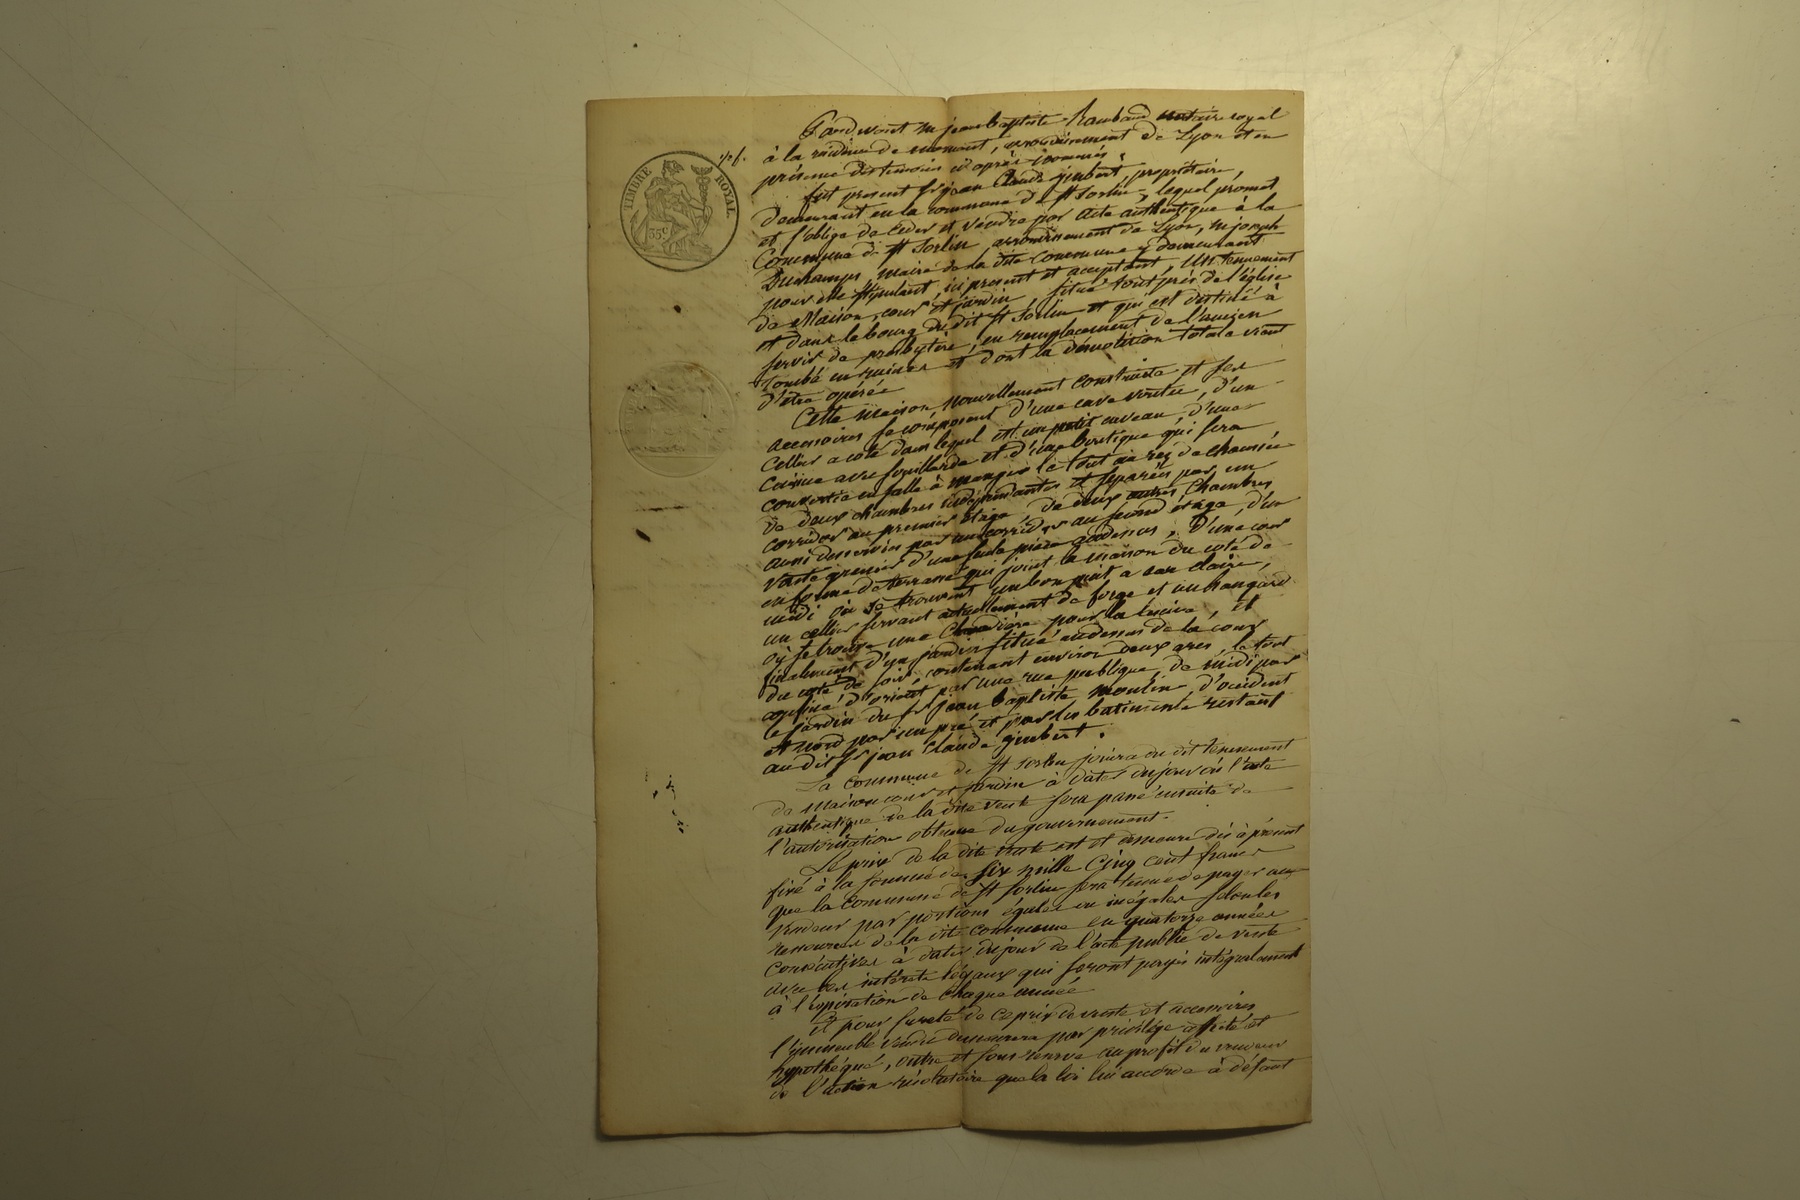 TIMBRE ROYAL
35 c
Pardevant me jean baptiste Raubaud notaire royal
à la residence de mornant, arrondissement de Lyon et en
présence des temoins ci après nommés.
fut present sr jean Claude gimbert, propriétaire,
demeurant en la commune de st Sorlin, lequel promet
et s'oblige de ceder et vendre par acte authentique à la
Commune de st Sorlin, arrondissement de Lyon, m joseph
Duchamps, maire de la dite commune y demeurant
pour elle stipulant, ici present et acceptant, un tennement
de Maison, cour et jardin situé tout près de l'église
et dans le bourg du dit st Sorlin et qui est destiné à
servir de presbytère, en remplacement de l'ancien
tombé en ruines et dont la démolition totale vient
d'être opérée
Cette maison nouvellement construite et ses
accessoires se composent d'une cave voutée, d'un
cellier a coté dans lequel est un petit caveau, d'une
cuisine avec souillarde et d'une boutique qui sera
convertie en salle à manger le tout au rez de chaussée
de deux chambres indépendantes et séparées par un
corridor au premier étage, de deux autres chambres
aussi desservies par un corridor au second étage, d'un
vaste grenier d'une seule pièce audessus, d'une cour
en forme de terrasse qui joint la maison du coté de
midi où se trouvent un bon puit a eau claire,
un cellier servant actuellement de forge et un hangard
où se trouve une Chaudière pour la lessive, et
finalement d'un jardin situé audessus de la cour
du coté de soir, contenant environ deux ares, le tout
confiné d'orient par une rue publique, de midi par
le jardin du sr jean baptiste moulin, d'occident
et nord par un pré et par les batiments restant
au dit sr jean Claude gimbert.
La commune de st Sorlin jouira du dit tennement
de maison cour et jardin à dater du jour où l'acte
authentique de la dite vente sera passé ensuite de
l'autorisation obtenue du gouvernement.
Le prix de la dite vente est et demeure dès à présent
fixé à la somme de six mille Cinq cent francs
que la commune de st Sorlin sera tenue de payer au
vendeur par portions égales ou inégales selon les
ressources de la dite commune en quatorze années
consécutives à dater du jour de l'acte public de vente
avec les intérêts légaux qui seront payés intégralement
à l'expiration de chaque année
Et pour sureté de ce prix de vente et accessoires
l'immeuble vendu demeurera par privilége affecté et
hypothéqué, outre et sous reserve au profit du vendeur
de l'action résolutoire que la loi lui accorde à défaut